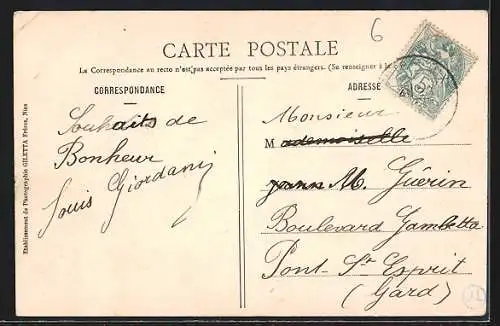 6
CARTE POSTALE
La Correspondance au recto n'est pas acceptée par tous les pays étrangers. (Se renseigner à la
CORRESPONDANCE
ADRESSE
Souhaits de
Bonheur
Louis Giordani
Monsieur
M ademoiselle
M. Guérin
Boulevard Gambetta
Pont-St Esprit
(Gard)
Etablissement de Photographie GILETTA Frères, Nice